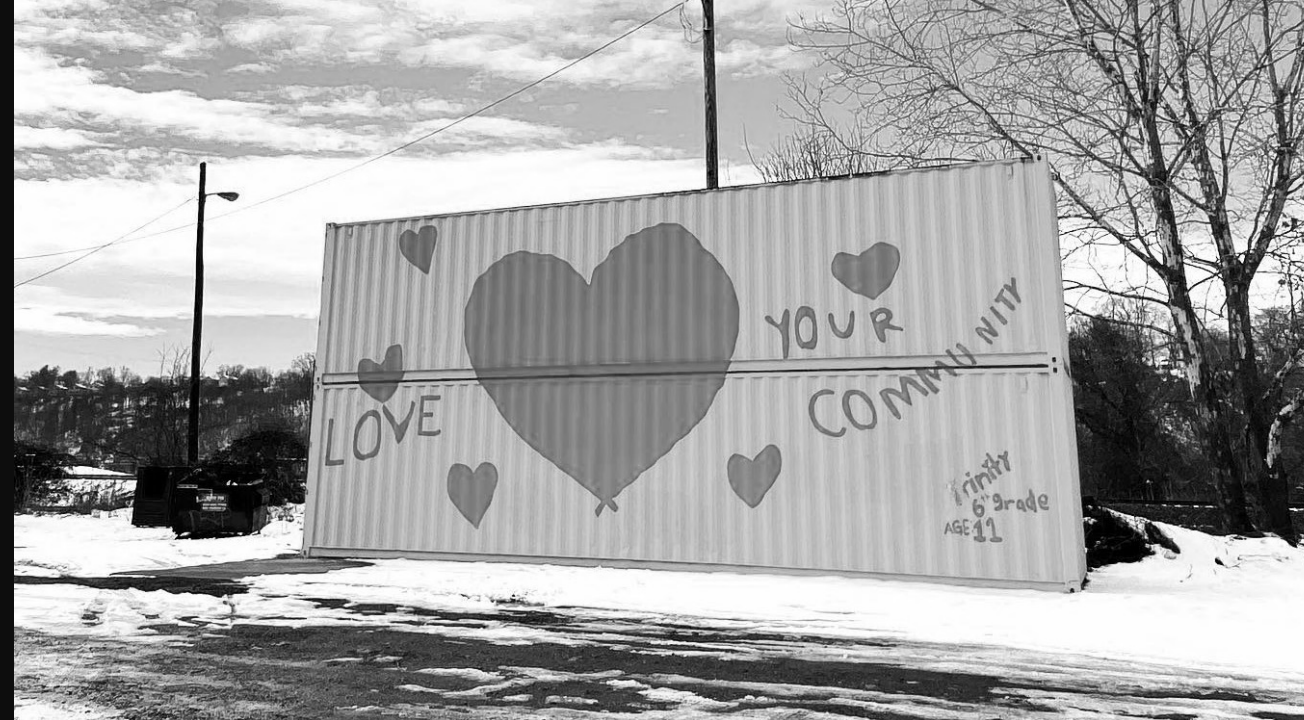 LOVE
YOUR
COMMUNITY
Trinity
6th grade
AGE 11